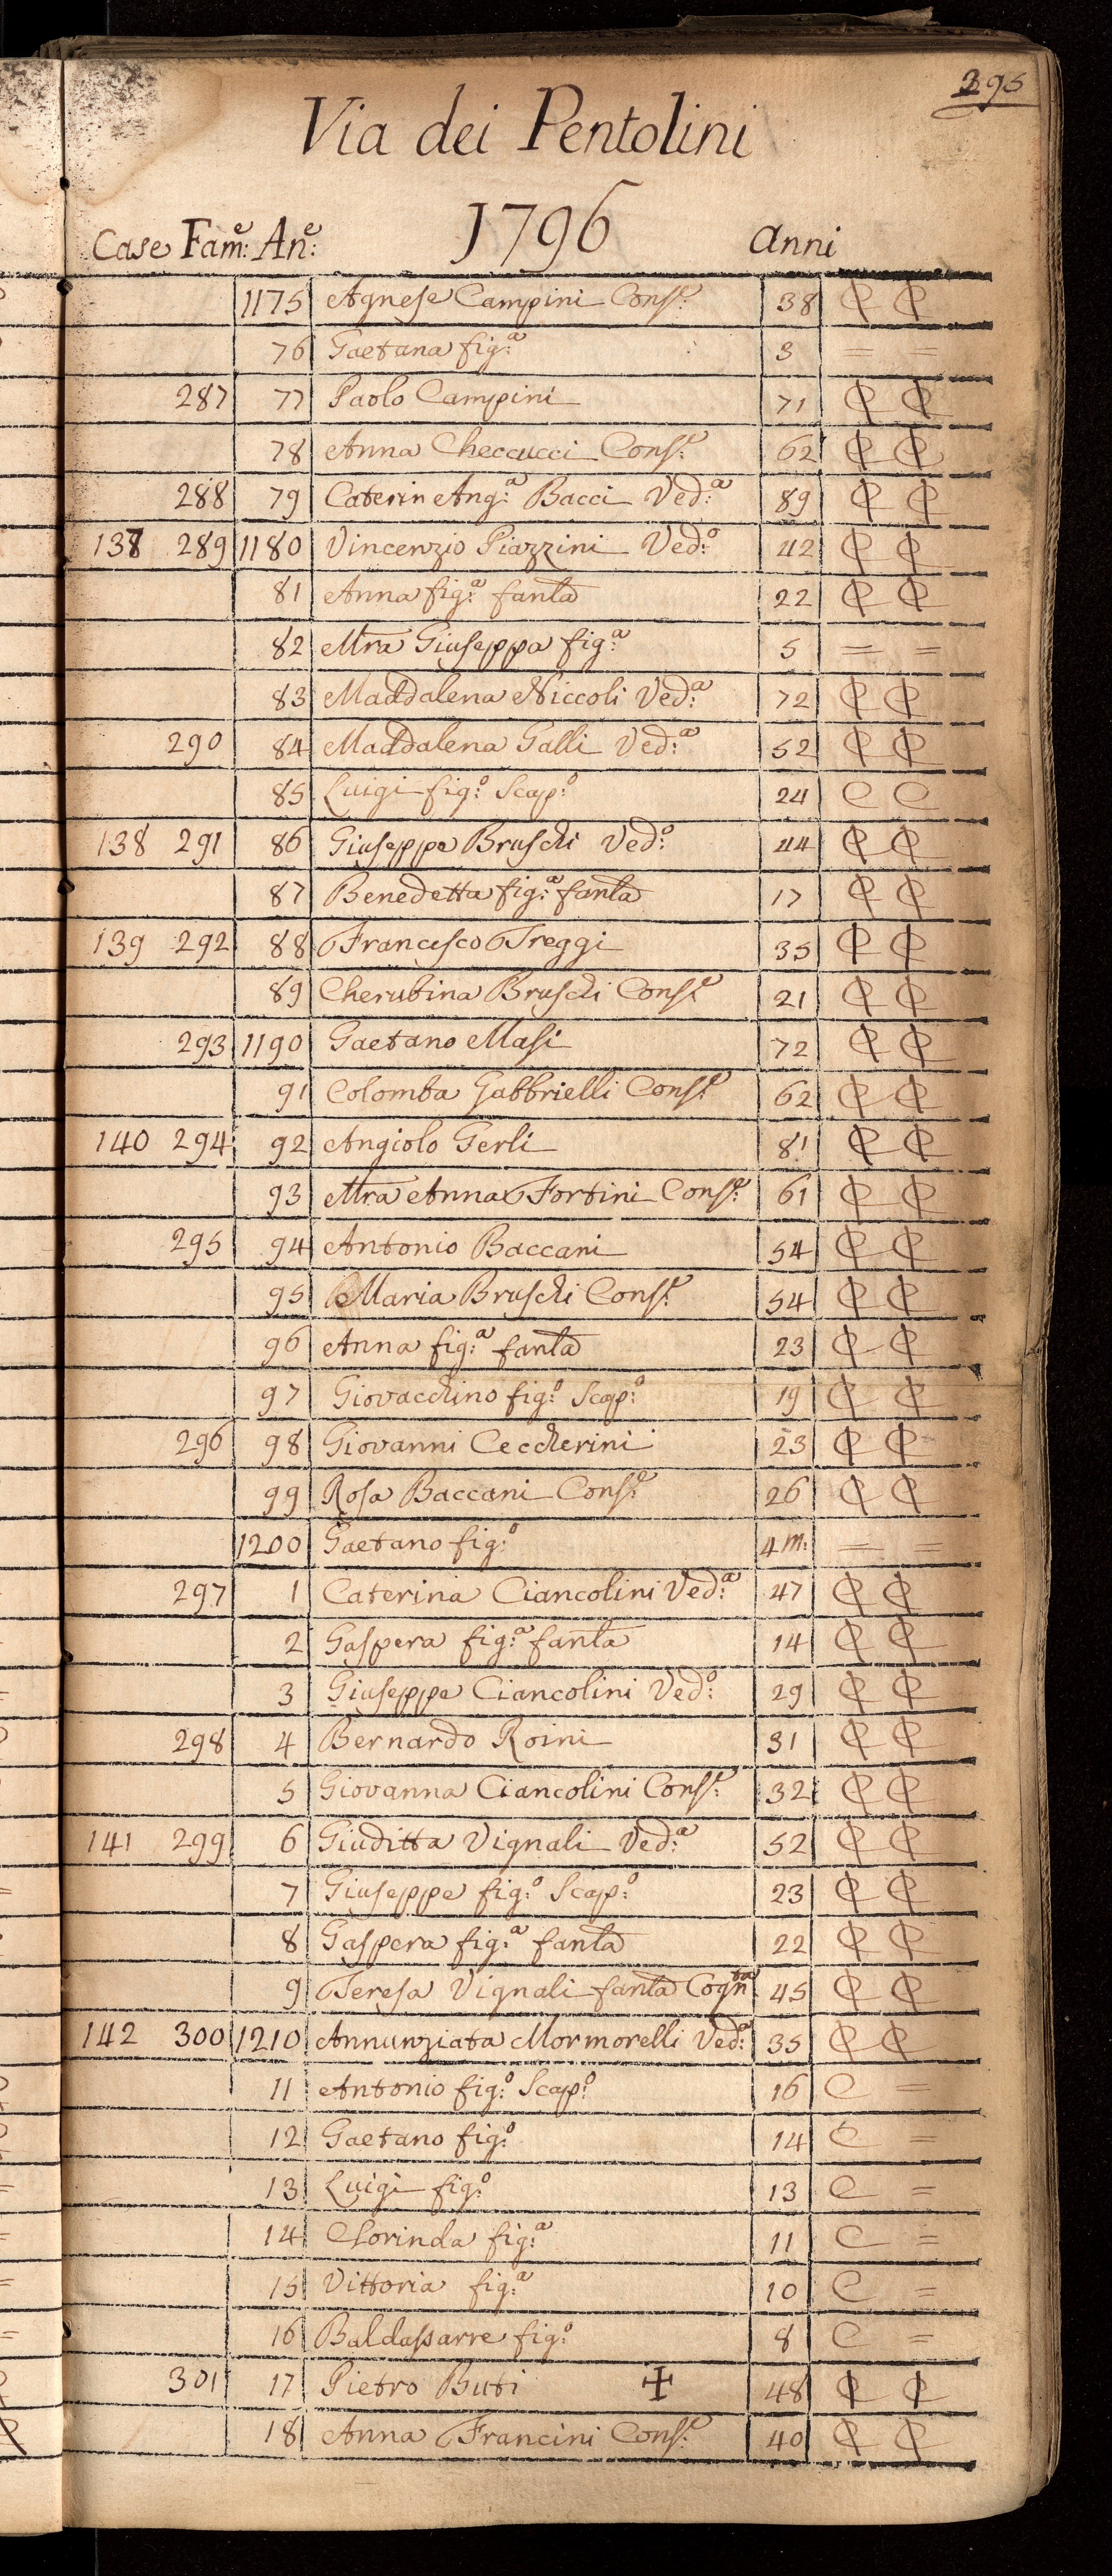 395
Via dei Pentolini
1796
Case Fam:e An:e anni
1175 Agnese Campini Cons:e 38
76 Gaetana fig:a 3 = =
287 77 Paolo Campini 71
78 Anna Checcucci Cons:e 62
288 79 Caterin Ang:a Bacci Ved:a 89
137 289 1180 Vincenzio Piazzini Ved:o 42
81 Anna fig:a fanla 22
82 Mra Giuseppa fig:a 5 = =
83 Maddalena Niccoli Ved:a 72
290 84 Maddalena Galli Ved:a 52
85 Luigi fig:o Scap:o 24 C C
138 291 86 Giuseppe Bruschi Ved:o 44
87 Benedetta fig:a fanla 17
139 292 88 Francesco Treggi 35
89 Cherubina Bruschi Cons:e 21
293 1190 Gaetano Masi 72
91 Colomba Gabbrielli Cons:e 62
140 294 92 Angiolo Gerli 81
93 Mra Anna Fortini Cons:e 61
295 94 Antonio Baccani 54
95 Maria Bruschi Cons:e 54
96 Anna fig:a fanla 23
97 Giovacchino fig:o Scap:o 19
296 98 Giovanni Ceccherini 23
99 Rosa Baccani Cons:e 26
1200 Gaetano fig:o 4 m: = =
297 1 Caterina Ciancolini Ved:a 47
2 Gaspera fig:a fanla 14
3 Giuseppe Ciancolini Ved:o 29
298 4 Bernardo Roini 31
5 Giovanna Ciancolini Cons:e 32
141 299 6 Giuditta Vignali Ved:a 52
7 Giuseppe fig:o Scap:o 23
8 Gaspera fig:a fanla 22
9 Teresa Vignali fanla Cogn:ta 45
142 300 1210 Annunziata Mormorelli Ved:a 35
11 Antonio fig:o Scap:o 16 C =
12 Gaetano fig:o 14 C =
13 Luigi fig:o 13 C =
14 Clorinda fig:a 11 C =
15 Vittoria fig:a 10 C =
16 Baldassarre fig:o 8 C =
301 17 Pietro Buti ✠ 48
18 Anna Francini Cons:e 40